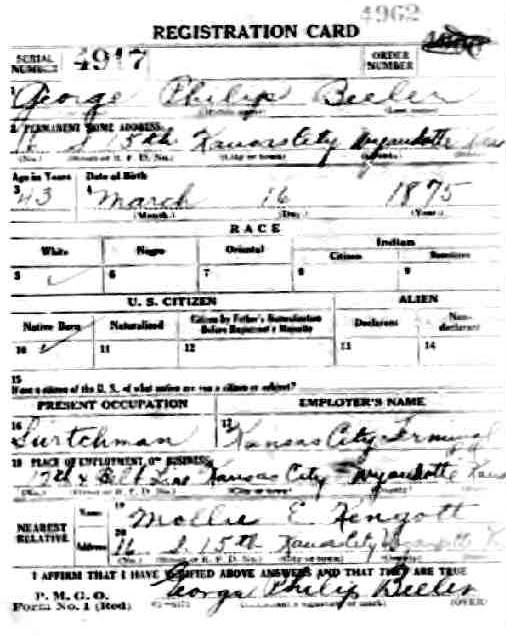 4962
REGISTRATION CARD
SERIAL NUMBER 4917 ORDER NUMBER
1 George Philip Beeler
2 PERMANENT HOME ADDRESS:
16 S 15th Kansas City Wyandotte Kas
(No.) (Street or R. F. D. No.) (City or town) (County) (State)
Age in Years Date of Birth
3 43 4 March 16 1875
(Month.) (Day.) (Year.)
RACE
White Negro Oriental Indian
Citizen Noncitizen
5 ✓ 6 7 8 9
U. S. CITIZEN ALIEN
Native Born Naturalized Citizen by Father's Naturalization Before Registrant's Majority Declarant Non-declarant
10 ✓ 11 12 13 14
15
If not a citizen of the U. S., of what nation are you a citizen or subject?
PRESENT OCCUPATION EMPLOYER'S NAME
16 Switchman 17 Kansas City Terminal
18 PLACE OF EMPLOYMENT OR BUSINESS:
12th & Belt Line Kansas City Wyandotte Kans
(No.) (Street or R. F. D. No.) (City or town) (County) (State)
NEAREST RELATIVE Name 19 Mollie E.
Address 20 16 S. 15th Kansas City Wyandotte
(No.) (Street or R. F. D. No.) (City or town) (County)
I AFFIRM THAT I HAVE VERIFIED ABOVE ANSWERS AND THAT THEY ARE TRUE
P. M. G. O.
Form No. 1 (Red) George Philip Beeler
(Registrant's signature or mark) (OVER)